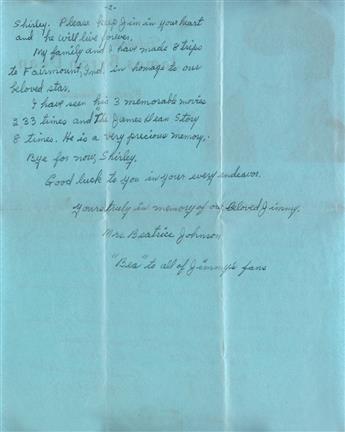 -2-
Shirley. Please keep Jim in your heart
and he will live forever.
My family and I have made 8 trips
to Fairmount, Ind. in homage to our
beloved star.
I have seen his 3 memorable movies
233 times and The James Dean Story
8 times. He is a very precious memory.
Bye for now, Shirley.
Good luck to you in your every endeavor.
Yours truly in memory of our beloved Jimmy.
Mrs. Beatrice Johnson
"Bea" to all of Jimmy's fans